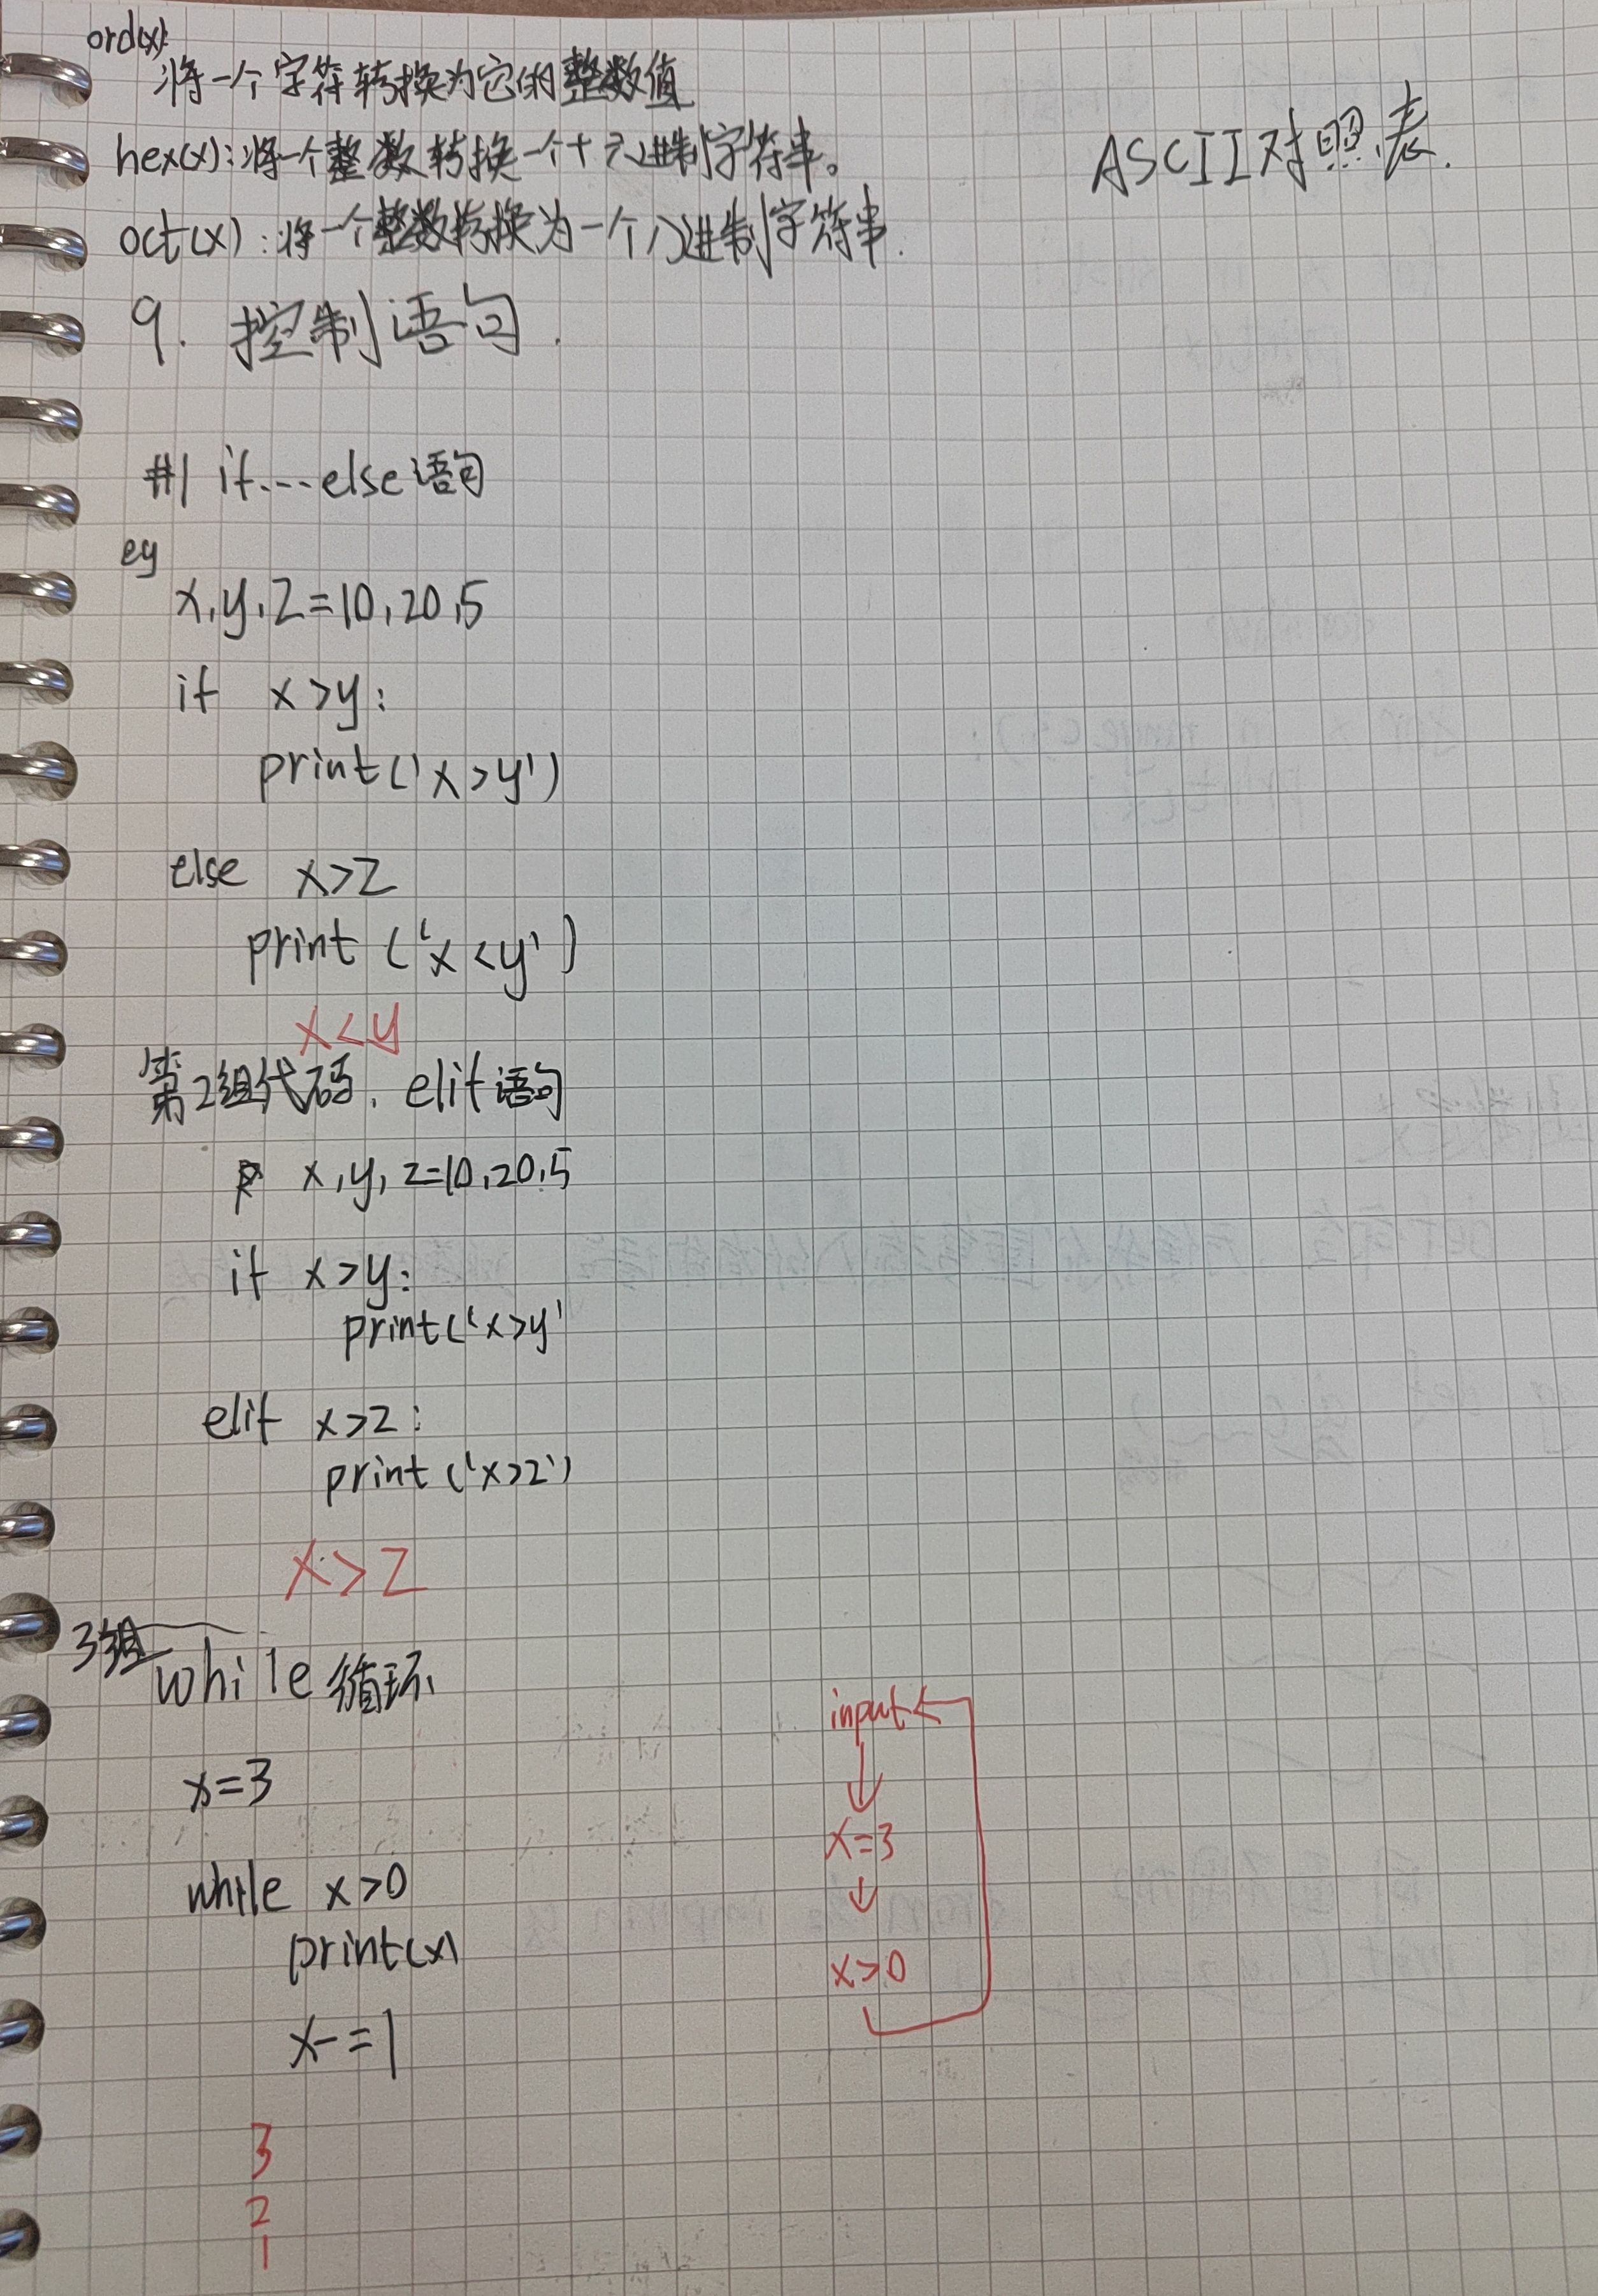 ord(x):
将一个字符转换为它的整数值
hex(x):将一个整数转换一个十六进制字符串。
ASCII对照表.
oct(x):将一个整数转换为一个八进制字符串.
9. 控制语句.
#1 if....else语句
eg
x,y,z=10,20,5
if x>y:
print('x>y')
else x>z
print('x<y')
x<y
第2组代码. elif语句
x,y,z=10,20,5
if x>y:
print('x>y'
elif x>z:
print('x>z')
x>z
3组
while循环
x=3
while x>0
print(x)
x-=1
3
2
1
input
x=3
x>0